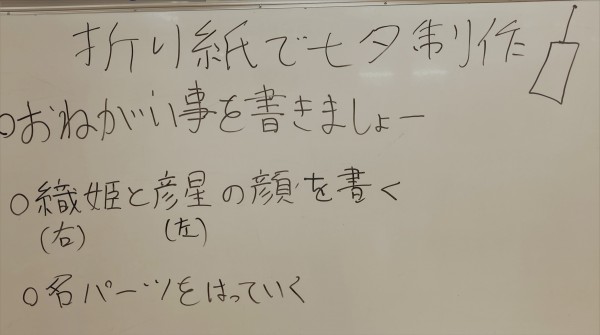 折り紙で七夕制作
○おねがい事を書きましょー
○織姫と彦星の顔を書く
(右) (左)
○各パーツをはっていく